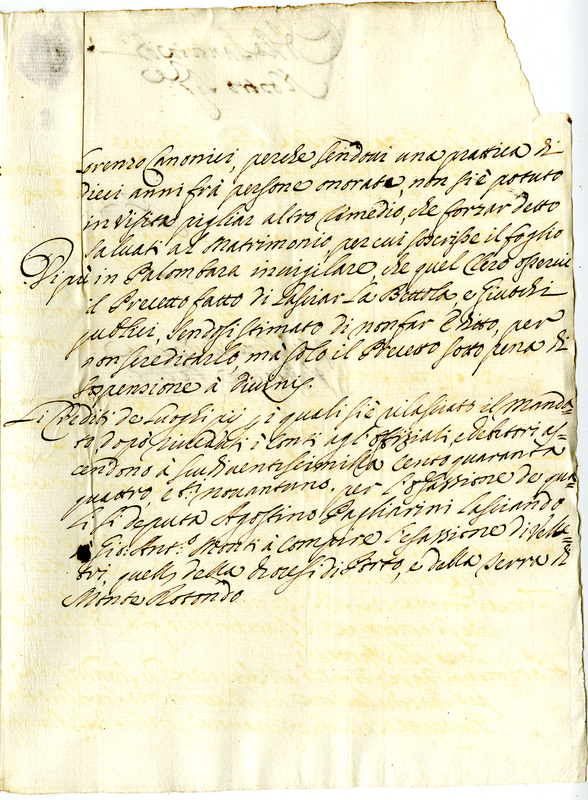 Lorenzo Canonici, perche sendovi una prattica di
dieci anni frà persone onorate, non si è potuto
in visita pigliar altro rimedio, che forzar detto
Salvati al Matrimonio, per cui soscrisse il foglio
Di più in Palombara invigilare, che quel Clero osservi
il Precetto fatto di lasciar la Bettola, e Giuochi
publici, sendosi stimato di non far Editto, per
non screditarlo, mà solo il Precetto sotto pena di
sospensione à divinis.
Li Crediti de Luoghi pij, i quali si è rilasciato il Manda
to dopo riveduti i Conti agl'offiziali, e debitori as=
cendono à scudi ventiseimila cento quaranta
quattro e novantuno, per l'esazzione de qua=
li si deputa Agostino Pagliarini lasciando
à Gio: Ant.º Monti à compire l'esazzione di Velle=
tri, quella della diocesi di Porto, e della Terra di
Monte Rotondo